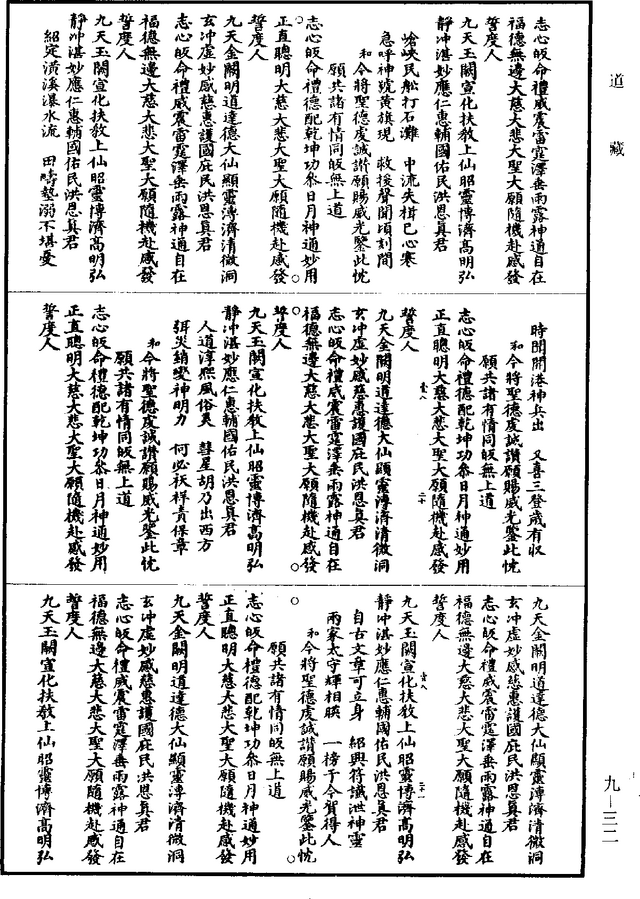 道藏
志心皈命禮威震雷霆澤垂雨露神通自在
福德無邊大慈大悲大聖大願隨機赴感發
誓度人
九天玉闕宣化扶教上仙昭靈博濟高明弘
靜沖湛妙應仁惠輔國佑民洪恩真君
嗆峽民船打石灘　中流失楫已心寒
急呼神號黃旗現　救援聲聞頃刻間
和今將聖德虔誠讚願賜威光鑒此忱
願共諸有情同皈無上道
志心皈命禮德配乾坤功參日月神通妙用
正直聰明大慈大悲大聖大願隨機赴感發
誓度人
九天金闕明道達德大仙顯靈溥濟清微洞
玄沖虛妙感慈惠護國庇民洪恩真君
志心皈命禮威震雷霆澤垂雨露神通自在
福德無邊大慈大悲大聖大願隨機赴感發
誓度人
九天玉闕宣化扶教上仙昭靈博濟高明弘
靜沖湛妙應仁惠輔國佑民洪恩真君
紹定潢溪瀑水流　田疇墊溺不堪憂
時聞開港神兵出　又喜三登歲有收
和今將聖德虔誠讚願賜威光鑒此忱
願共諸有情同皈無上道
志心皈命禮德配乾坤功參日月神通妙用
正直聰明大慈大悲大聖大願隨機赴感發
誓度人
九天金闕明道達德大仙顯靈溥濟清微洞
玄沖虛妙感慈惠護國庇民洪恩真君
志心皈命禮威震雷霆澤垂雨露神通自在
福德無邊大慈大悲大聖大願隨機赴感發
誓度人
九天玉闕宣化扶教上仙昭靈博濟高明弘
靜沖湛妙應仁惠輔國佑民洪恩真君
人道淳熙風俗美　彗星胡乃出西方
弭災銷變神明力　何必祅祥責保章
和今將聖德虔誠讚願賜威光鑒此忱
願共諸有情同皈無上道
志心皈命禮德配乾坤功參日月神通妙用
正直聰明大慈大悲大聖大願隨機赴感發
誓度人
九天金闕明道達德大仙顯靈溥濟清微洞
玄沖虛妙感慈惠護國庇民洪恩真君
志心皈命禮威震雷霆澤垂雨露神通自在
福德無邊大慈大悲大聖大願隨機赴感發
誓度人
九天玉闕宣化扶教上仙昭靈博濟高明弘
靜沖湛妙應仁惠輔國佑民洪恩真君
自古文章可立身　紹興符讖泄神靈
兩家太守輝相映　一榜于今賀得人
和今將聖德虔誠讚願賜威光鑒此忱
願共諸有情同皈無上道
志心皈命禮德配乾坤功參日月神通妙用
正直聰明大慈大悲大聖大願隨機赴感發
誓度人
九天金闕明道達德大仙顯靈溥濟清微洞
玄沖虛妙感慈惠護國庇民洪恩真君
志心皈命禮威震雷霆澤垂雨露神通自在
福德無邊大慈大悲大聖大願隨機赴感發
誓度人
九天玉闕宣化扶教上仙昭靈博濟高明弘
九—三二